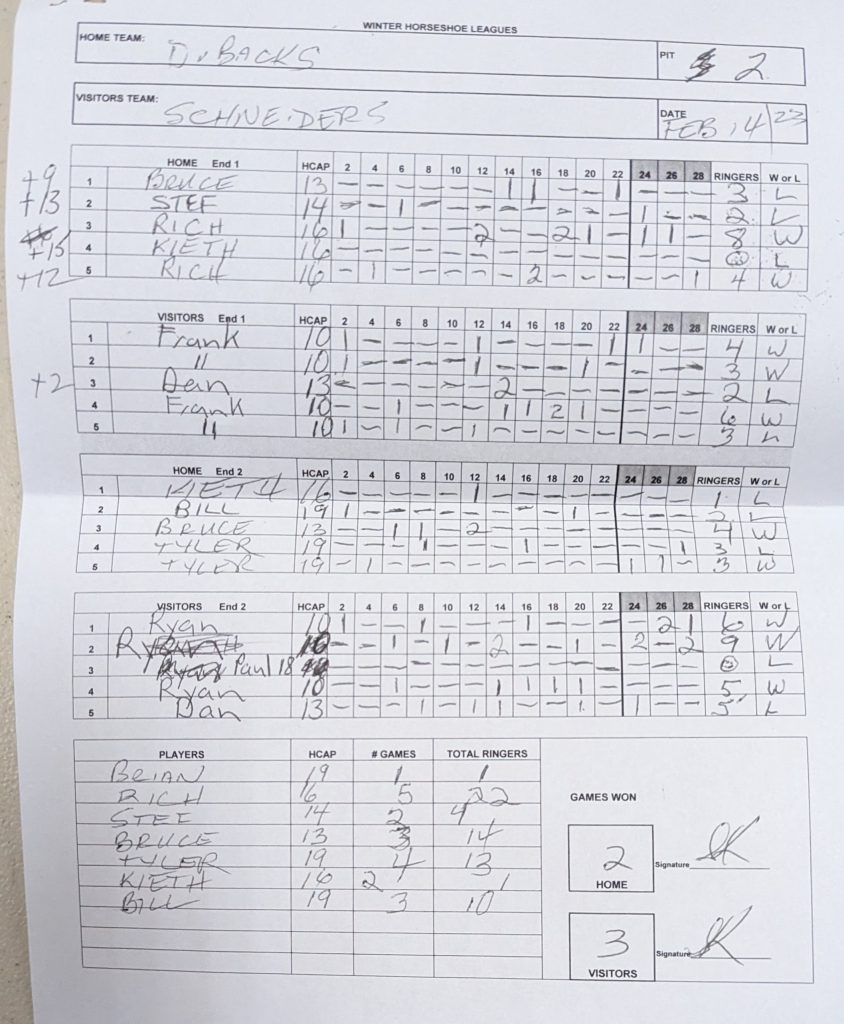 WINTER HORSESHOE LEAGUES
HOME TEAM: D.BACKS PIT 2
VISITORS TEAM: SCHNEIDERS DATE FEB 14/23
HOME End 1 HCAP 2 4 6 8 10 12 14 16 18 20 22 24 26 28 RINGERS W or L
+9 1 BRUCE 13 – – – – – – 1 1 – – 1 – – – 3 L
+13 2 STEF 14 – – 1 – – – – – – – – 1 – – 2 L
3 RICH 16 1 – – – – 2 – – 2 1 – 1 1 – 8 W
+15 4 KIETH 16 – – – – – – – – – – – – – – 0 L
+12 5 RICH 16 – 1 – – – – – 2 – – – – – 1 4 W
VISITORS End 1 HCAP 2 4 6 8 10 12 14 16 18 20 22 24 26 28 RINGERS W or L
1 Frank 10 1 – – – – 1 – – – – 1 1 – – 4 W
2 " 10 1 – – – – 1 – – – 1 – – – – 3 W
+2 3 Dan 13 – – – – – – 2 – – – – – – – 2 L
4 Frank 10 – – 1 – – – 1 1 2 1 – – – – 6 W
5 " 10 1 – 1 – – 1 – – – – – – – – 3 L
HOME End 2 HCAP 2 4 6 8 10 12 14 16 18 20 22 24 26 28 RINGERS W or L
1 KIETH 16 – – – – – 1 – – – – – – – – 1 L
2 BILL 19 1 – – – – – – – – 1 – – – – 2 L
3 BRUCE 13 – – 1 1 – 2 – – – – – – – – 4 W
4 TYLER 19 – – – 1 – – – 1 – – – – – 1 3 L
5 TYLER 19 – 1 – – – – – – – – – 1 1 – 3 W
VISITORS End 2 HCAP 2 4 6 8 10 12 14 16 18 20 22 24 26 28 RINGERS W or L
1 Ryan 10 1 – – 1 – – – 1 – – – – 2 1 6 W
2 10 – – 1 – 1 – 2 – – 1 – 2 – 2 9 W
3 Paul 18 – – – – – – – – – – – – – – 0 L
4 Ryan 10 – – 1 – – – 1 1 1 1 – – – – 5 W
5 Dan 13 – – – 1 – 1 1 – – 1 – 1 – – 5 L
PLAYERS HCAP # GAMES TOTAL RINGERS
BRIAN 19 1 1
RICH 16 5 22
STEF 14 2 4
BRUCE 13 3 14
TYLER 19 4 13
KIETH 16 2 1
BILL 19 3 10
GAMES WON
2 Signature
HOME
3 Signature
VISITORS